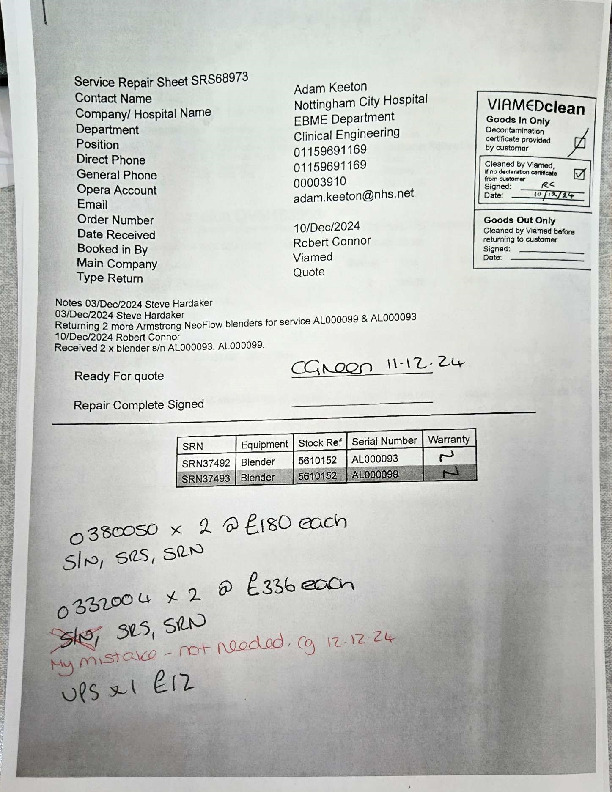 Service Repair Sheet SRS68973
Contact Name Adam Keeton
Company/ Hospital Name Nottingham City Hospital
Department EBME Department
Position Clinical Engineering
Direct Phone 01159691169
General Phone 01159691169
Opera Account 00003910
Email adam.keeton@nhs.net
Order Number
Date Received 10/Dec/2024
Booked in By Robert Connor
Main Company Viamed
Type Return Quote
VIAMEDclean
Goods In Only
Decontamination
certificate provided
by customer
Cleaned by Viamed,
if no declaration certificate
from customer
Signed: RC
Date: 10/12/24
Goods Out Only
Cleaned by Viamed before
returning to customer
Signed:
Date:
Notes 03/Dec/2024 Steve Hardaker
03/Dec/2024 Steve Hardaker
Returning 2 more Armstrong NeoFlow blenders for service AL000099 & AL000093
10/Dec/2024 Robert Connor
Received 2 x blender s/n AL000093. AL000099.
Ready For quote CGreen 11-12-24
Repair Complete Signed
SRN Equipment Stock Ref Serial Number Warranty
SRN37492 Blender 5610152 AL000093 N
SRN37493 Blender 5610152 AL000099 N
0380050 x 2 @ £180 each
S/N, SRS, SRN
0332004 x 2 @ £336 each
S/N, SRS, SRN
My mistake - not needed. cg 12-12-24
UPS x1 £12